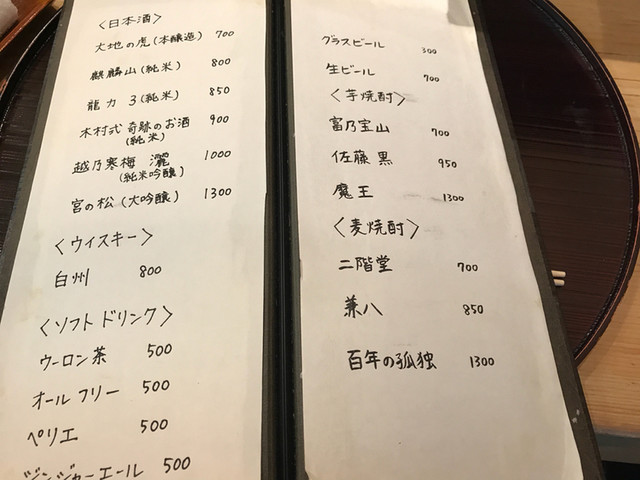 〈日本酒〉
大地の虎(本醸造) 700
麒麟山(純米) 800
龍力 3(純米) 850
木村式 奇跡のお酒 900
(純米)
越乃寒梅 灑 1000
(純米吟醸)
宮の松(大吟醸) 1300
〈ウイスキー〉
白州 800
〈ソフトドリンク〉
ウーロン茶 500
オールフリー 500
ペリエ 500
ジンジャーエール 500
グラスビール 300
生ビール 700
〈芋焼酎〉
富乃宝山 700
佐藤 黒 950
魔王 1300
〈麦焼酎〉
二階堂 700
兼八 850
百年の孤独 1300